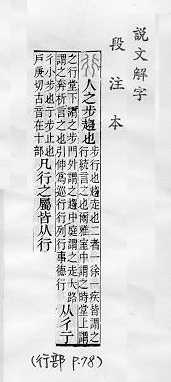 說文解字
段注本
人之步趨也
步行也趨走也二者一徐一疾皆謂之
行統言之也爾雅室中謂之時堂上謂
之行堂下謂之步門外謂之趨中庭謂之走大路
謂之奔析言之也引伸爲巡行行列行事德行
从彳亍
彳小步也亍步止也
戶庚切古音在十部
凡行之屬皆从行
(行部 P.78)